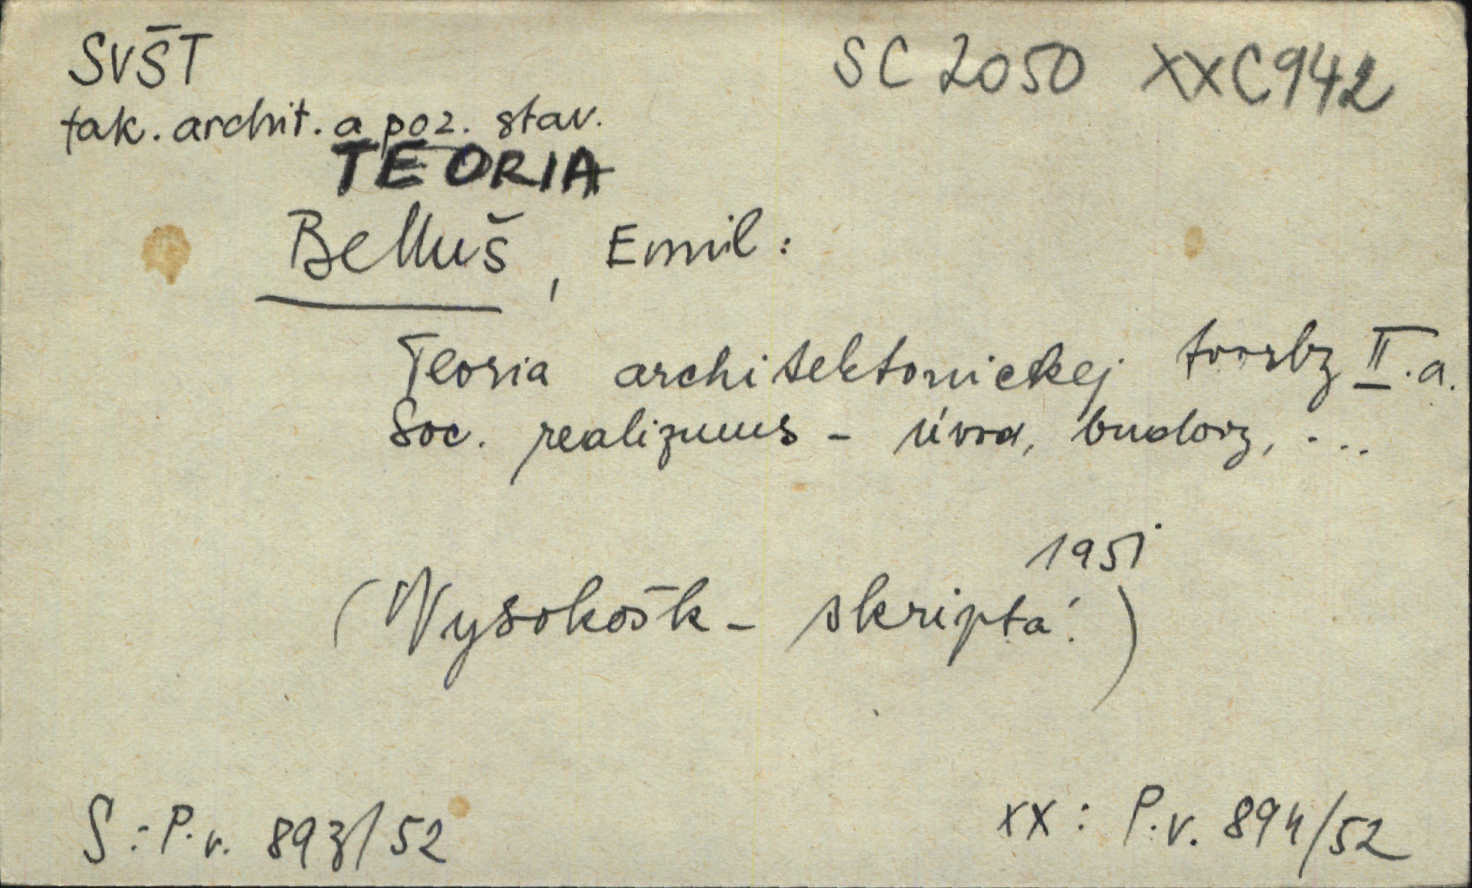 SVŠT SC 2050 XXC942
fak. archit. a poz. stav.
TEORIA
Belluš, Emil:
Teoria architektonickej tvorby II.a.
Soc. realizmus - úvod, budovy, ...
1951
(Vysokošk- skriptá.)
S: P.v. 893/52 xx: P.v. 894/52